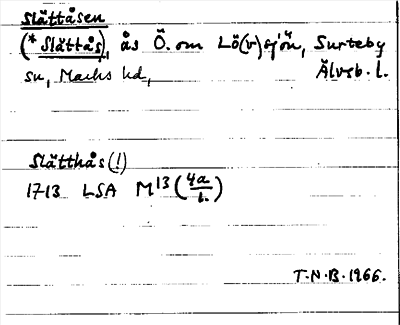 Slättåsen
(*Slättås), ås Ö. om Lö(v)sjön, Surteby
sn, Marks hd, Älvsb. l.
Slätthås(!)
1713 LSA M13 (4a/1.)
T.N.B. 1966.